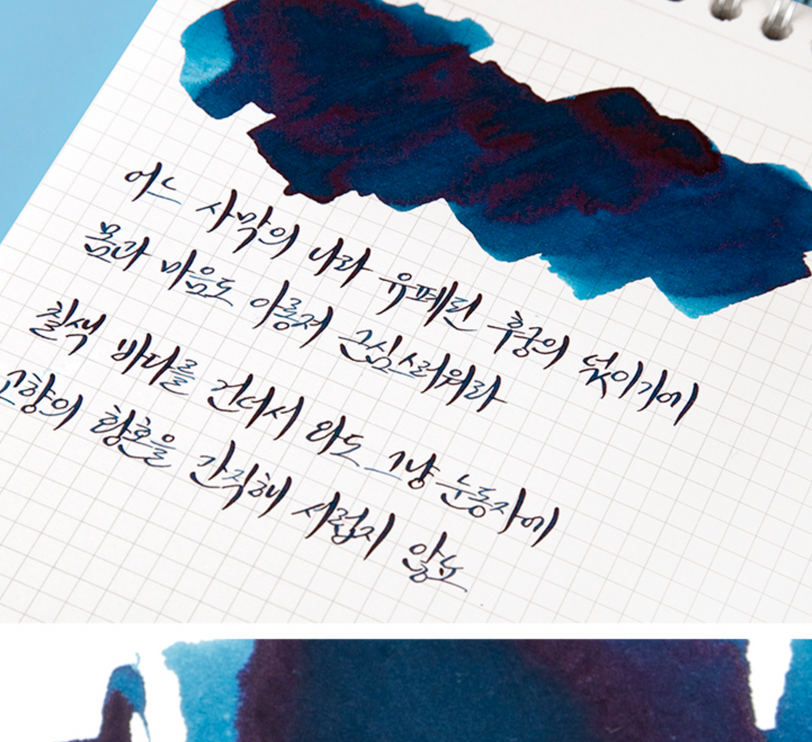 어느 사막의 나라 유폐된 후궁의 넋이기에
몸과 마음도 아롱져 근심스러워라
칠색 바다를 건너서 와도 그냥 눈동자에
고향의 황혼을 간직해 서럽지 않뇨